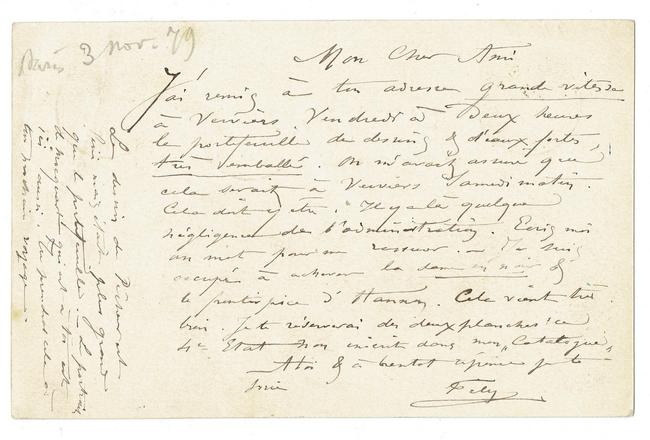 Paris 3 nov. 79
Mon Cher Ami
J'ai remis à ton adresse grande vitesse
à Verviers. Vendredi à Deux heures
le portefeuille de dessins & d'eaux fortes,
très emballé. On m'avait assuré que
cela serait à Verviers Samedi matin.
Cela doit y être. Il y a là quelque
négligence de l'administration. Ecris moi
un mot pour me rassurer. — Je suis
occupé à achever la dame en noir &
le frontispice d'Hannon. Cela vient très
bien. Je te réserverai des deux planches ! ce
4e Etat non inscrit dans mon „Catalogue"
A toi & à bientot
Fély
Le dessin de
était plus grand
que le portefeuille. — Le portrait
de qui est à toi est
ici aussi. Tu prendras cela à
ton prochain voyage.